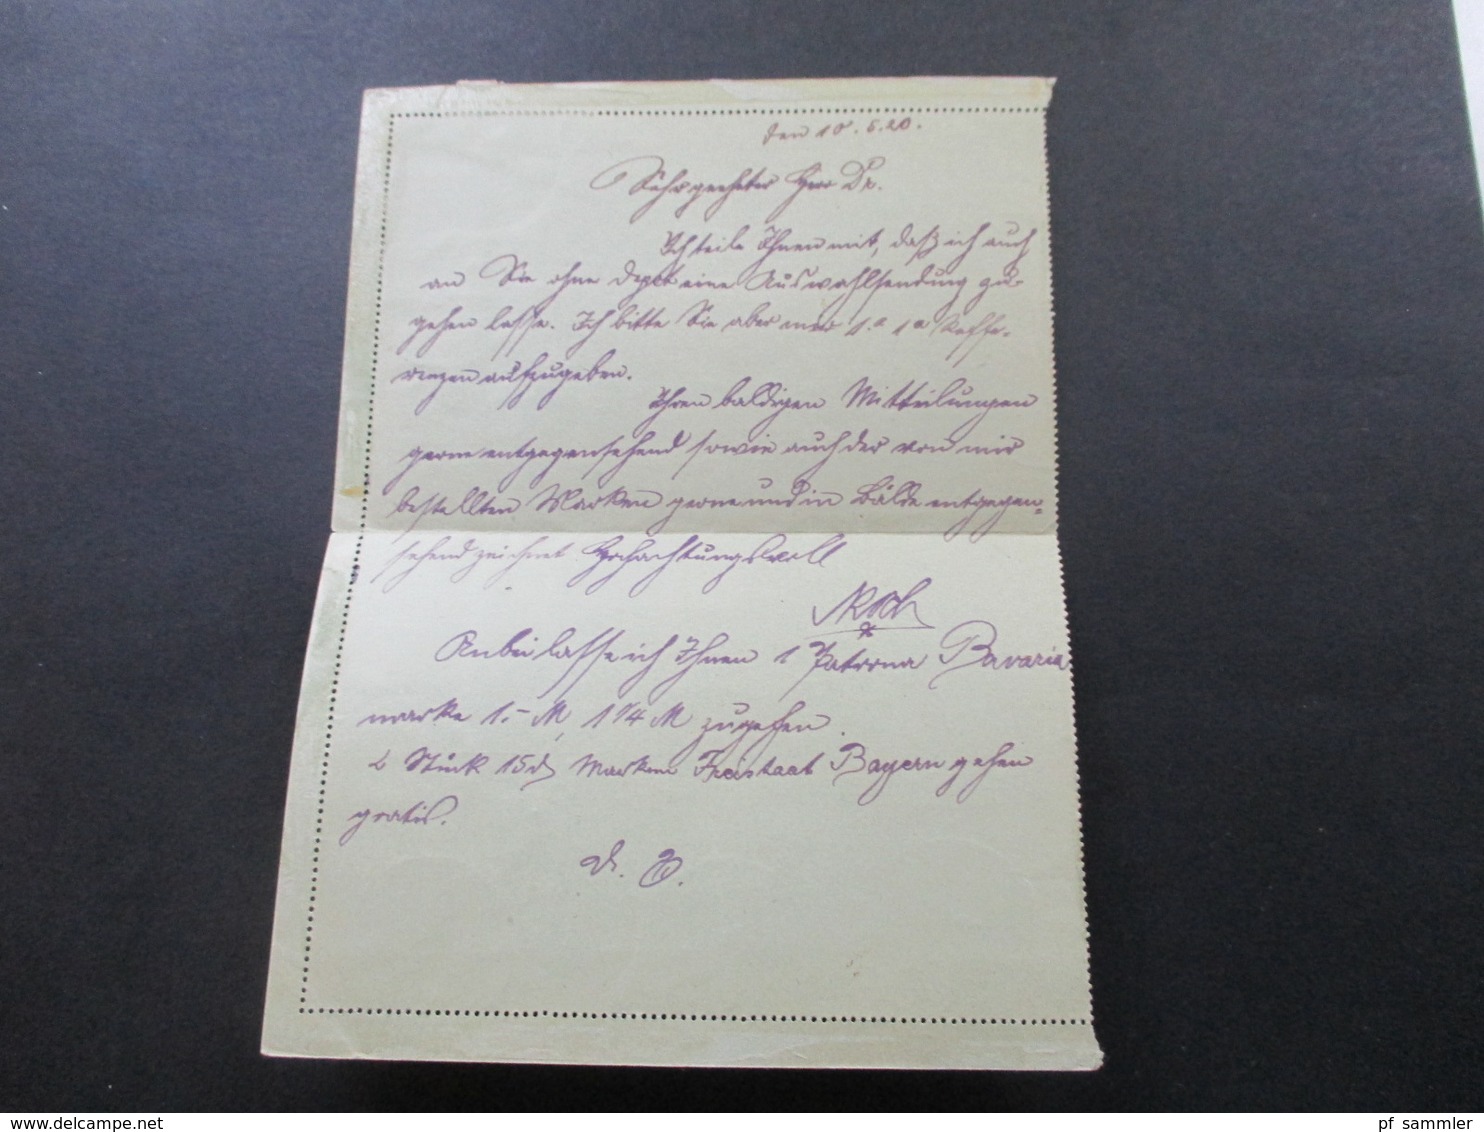 den 10. 6. 20.
Sehr geehrter Herr Dr.
Ich teile Ihnen mit, daß ich auch
an Sie ohne Depot eine Auswahlsendung zu-
gehen lasse. Ich bitte Sie aber mir 1.a 1a Reffe-
renzen aufzugeben.
Ihren baldigen Mitteilungen
gerne entgegensehend sowie auch der von mir
bestellten Marken gerne und in Bälde entgegen-
sehend zeichnet Hochachtungsvoll
Anbei lasse ich Ihnen 1 Patrona Bavaria
marke 1.- M, 1 1/4 M zugehen.
2 Stück 15 d Marken Freistaat Bayern gehen
gratis.
D. O.
www.delcampe.net
pf_sammler